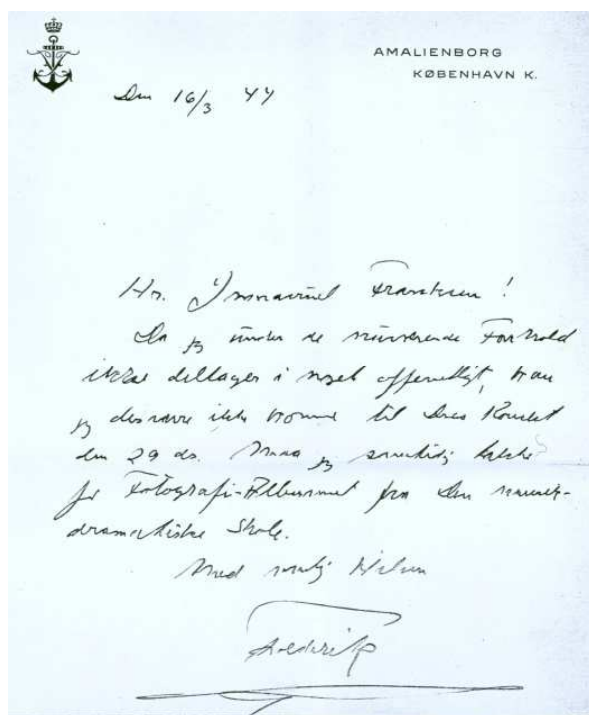 AMALIENBORG
KØBENHAVN K.
Den 16/3 44
Hr. Immanuel Frantsen!
Da jeg under de nuværende Forhold
ikke deltager i noget offentligt, kan
jeg desværre ikke komme til Deres Koncert
den 29 ds. Maa jeg samtidig takke
for Fotografi-Albummet fra Den musik-
dramatiske Skole.
Med venlig Hilsen
Frederik